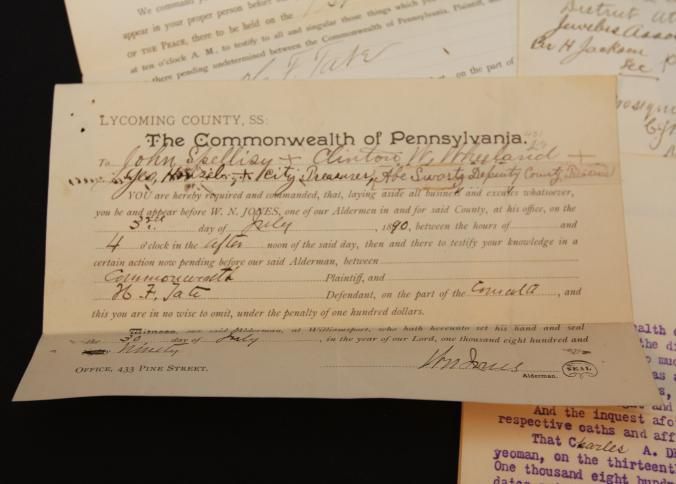 We command you
appear in your proper person before
OF THE PEACE, there to be held on the
at ten o'clock A. M., to testify to all and singular those things which you
there pending undetermined between the Commonwealth of Pennsylvania, Plaintiff, and
F. Tate
on the part of
District At
Juveliss Assoc
Per H Jackson
Sec
LYCOMING COUNTY, SS:
The Commonwealth of Pennsylvania.
To John Spellisy + Clinton W. Wheeland +
City Treasurer, Abe Swartz Deputy County Treasurer
YOU are hereby required and commanded, that, laying aside all business and excuses whatsoever,
you be and appear before W. N. JONES, one of our Aldermen in and for said County, at his office, on the
3rd day of July, 1890, between the hours of and
4 o'clock in the after noon of the said day, then and there to testify your knowledge in a
certain action now pending before our said Alderman, between
Commonwealth Plaintiff, and
H. F. Tate Defendant, on the part of the Comwlth, and
this you are in no wise to omit, under the penalty of one hundred dollars.
Witness, our said Alderman, at Williamsport, who hath hereunto set his hand and seal
the 30 day of July, in the year of our Lord, one thousand eight hundred and
Ninety
OFFICE, 433 PINE STREET. Wm Jones
Alderman. SEAL
alth
the di
muc
as a
s,
and
And the inquest afo
respective oaths and aff
That Charles A. D
yeoman, on the thirteenth
One thousand eight hund